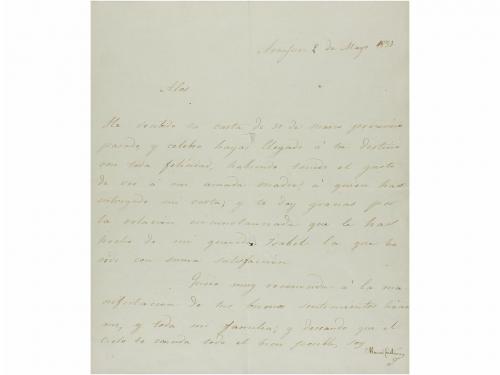 Aranjuez 2 de Mayo 1833
Alos
He recibido tu carta de 30 de marzo proximo
pasado, y celebro hayas llegado á tu destino
con toda felicidad, habiendo tenido el gusto
de ver á mi amada madre á quien has
entregado mi carta; y te doy gracias por
la relacion circunstanciada que le has
hecho de mi querida Isabel la que ha
oido con suma satisfaccion
Quedo muy reconocida á la ma
nifestacion de tus buenos sentimientos hácia
mi, y toda mi familia; y deseando que el
cielo te conceda todo el bien posible, soy
Maria Cristina